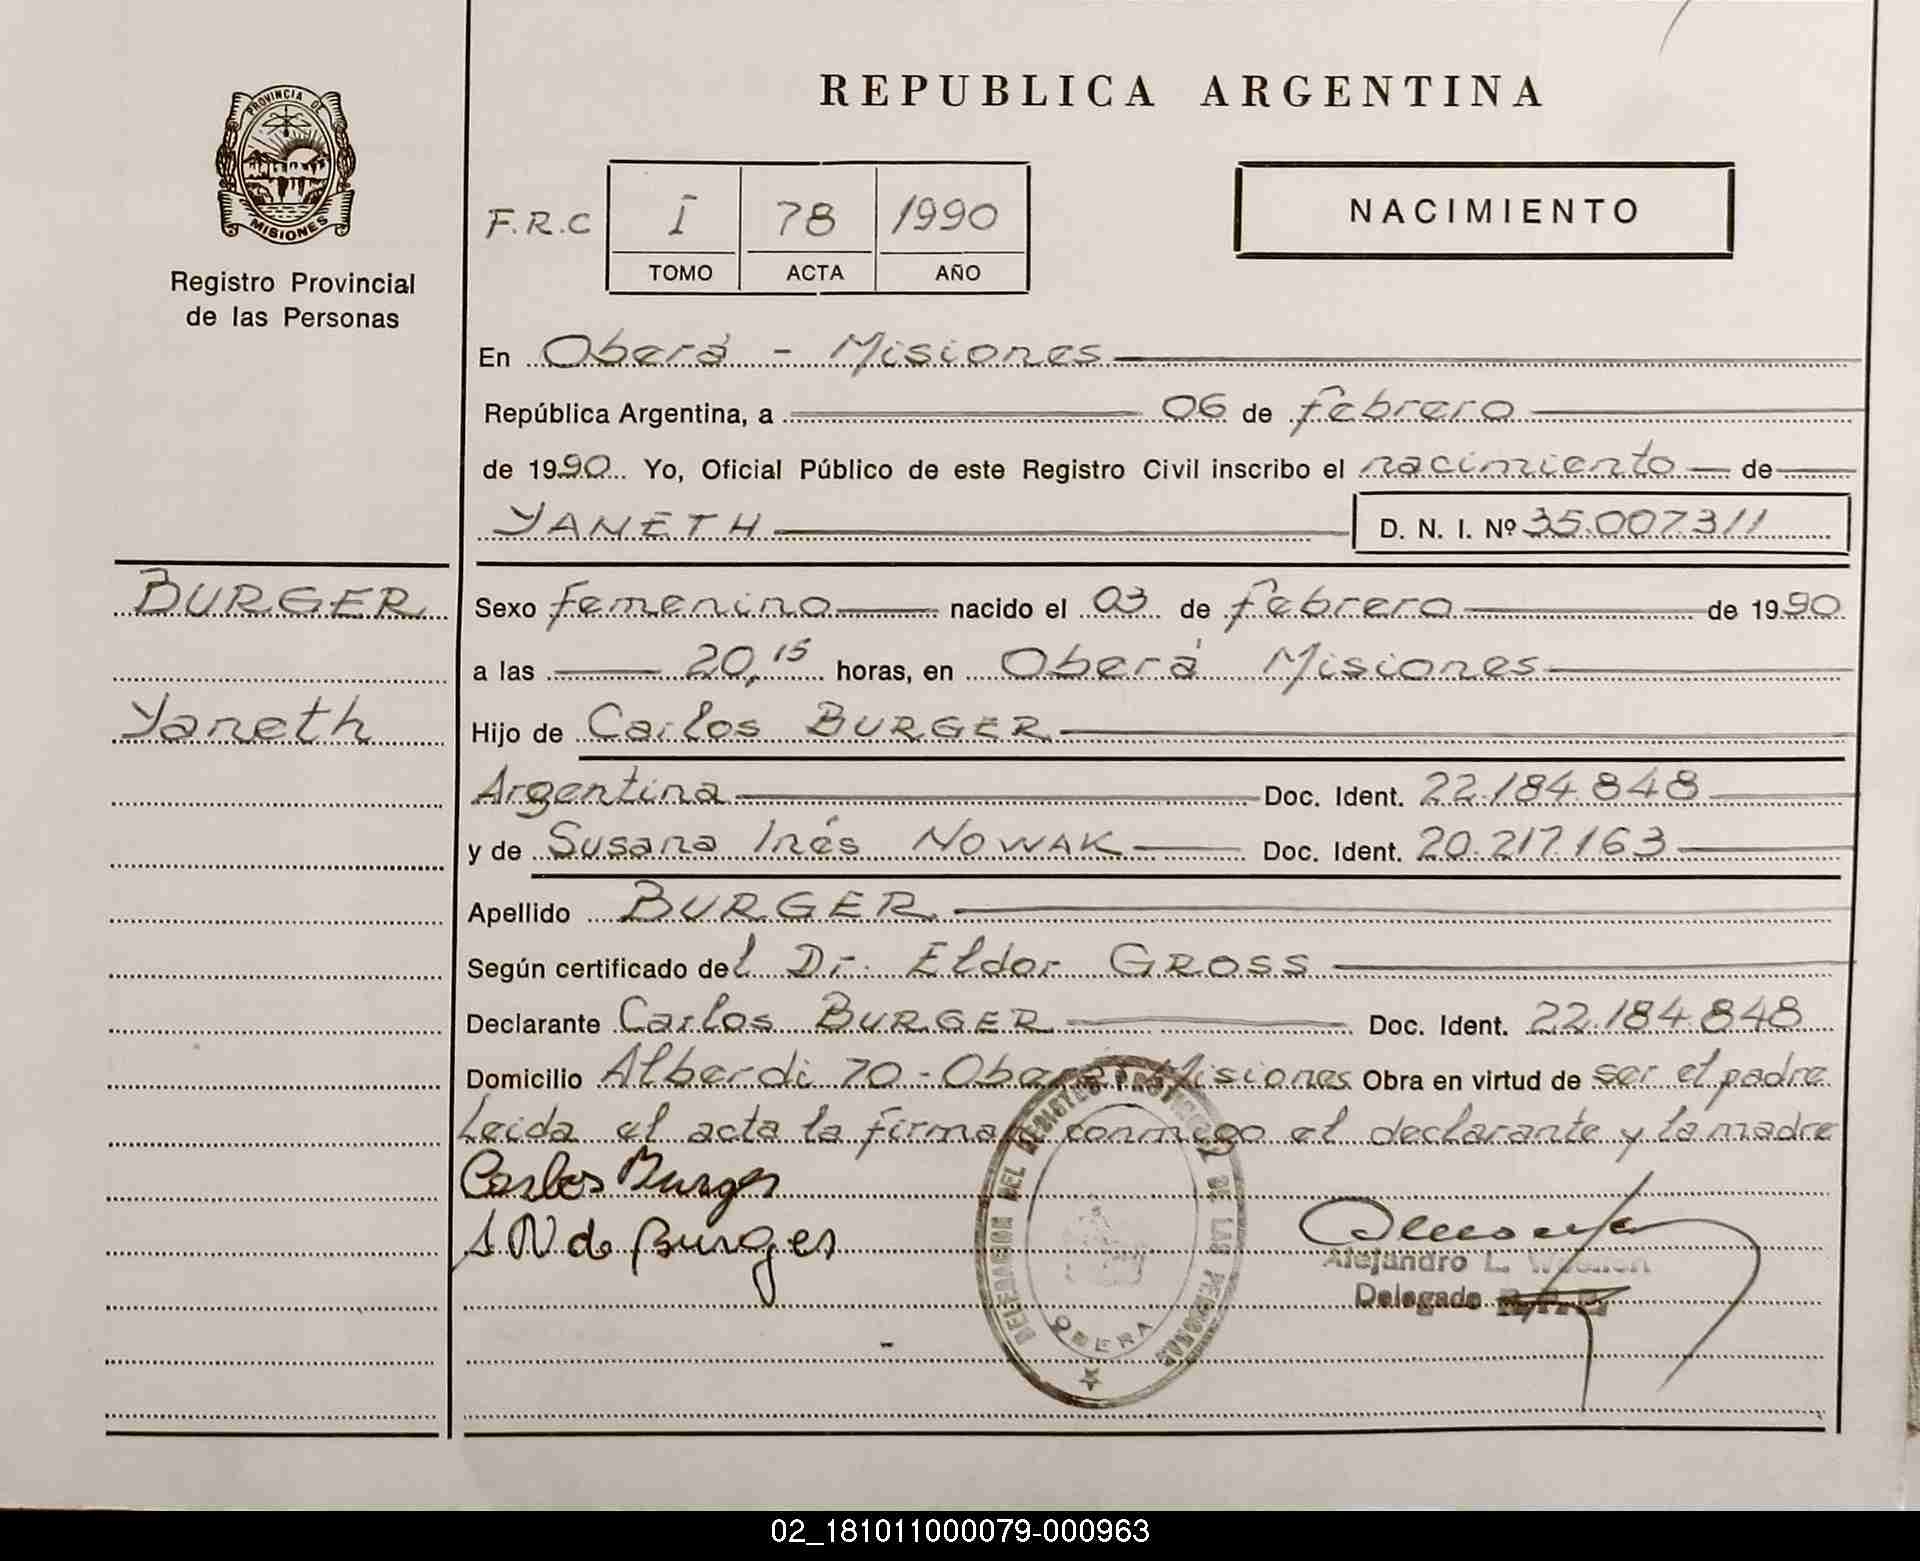 REPUBLICA ARGENTINA
PROVINCIA DE
MISIONES
Registro Provincial
de las Personas
F.R.C
I 78 1990
TOMO ACTA AÑO
NACIMIENTO
En Oberá - Misiones
República Argentina, a 06 de febrero
de 1990 Yo, Oficial Público de este Registro Civil inscribo el nacimiento de
YANETH D. N. I. Nº 35.007.311
BURGER
Yaneth
Sexo femenino nacido el 03 de febrero de 1990
a las 20,15 horas, en Oberá Misiones
Hijo de Carlos BURGER
Argentina Doc. Ident. 22.184.848
y de Susana Inés NOWAK Doc. Ident. 20.217.163
Apellido BURGER
Según certificado del Dr. Eldor GROSS
Declarante Carlos BURGER Doc. Ident. 22.184.848
Domicilio Alberdi 70 - Oberá Misiones Obra en virtud de ser el padre
Leida el acta la firman conmigo el declarante y la madre
Carlos Burger
S N de Burger
DELEGACION DEL REGISTRO PROVINCIAL DE LAS PERSONAS
OBERA
Alejandro L.
Delegado
02_181011000079-000963